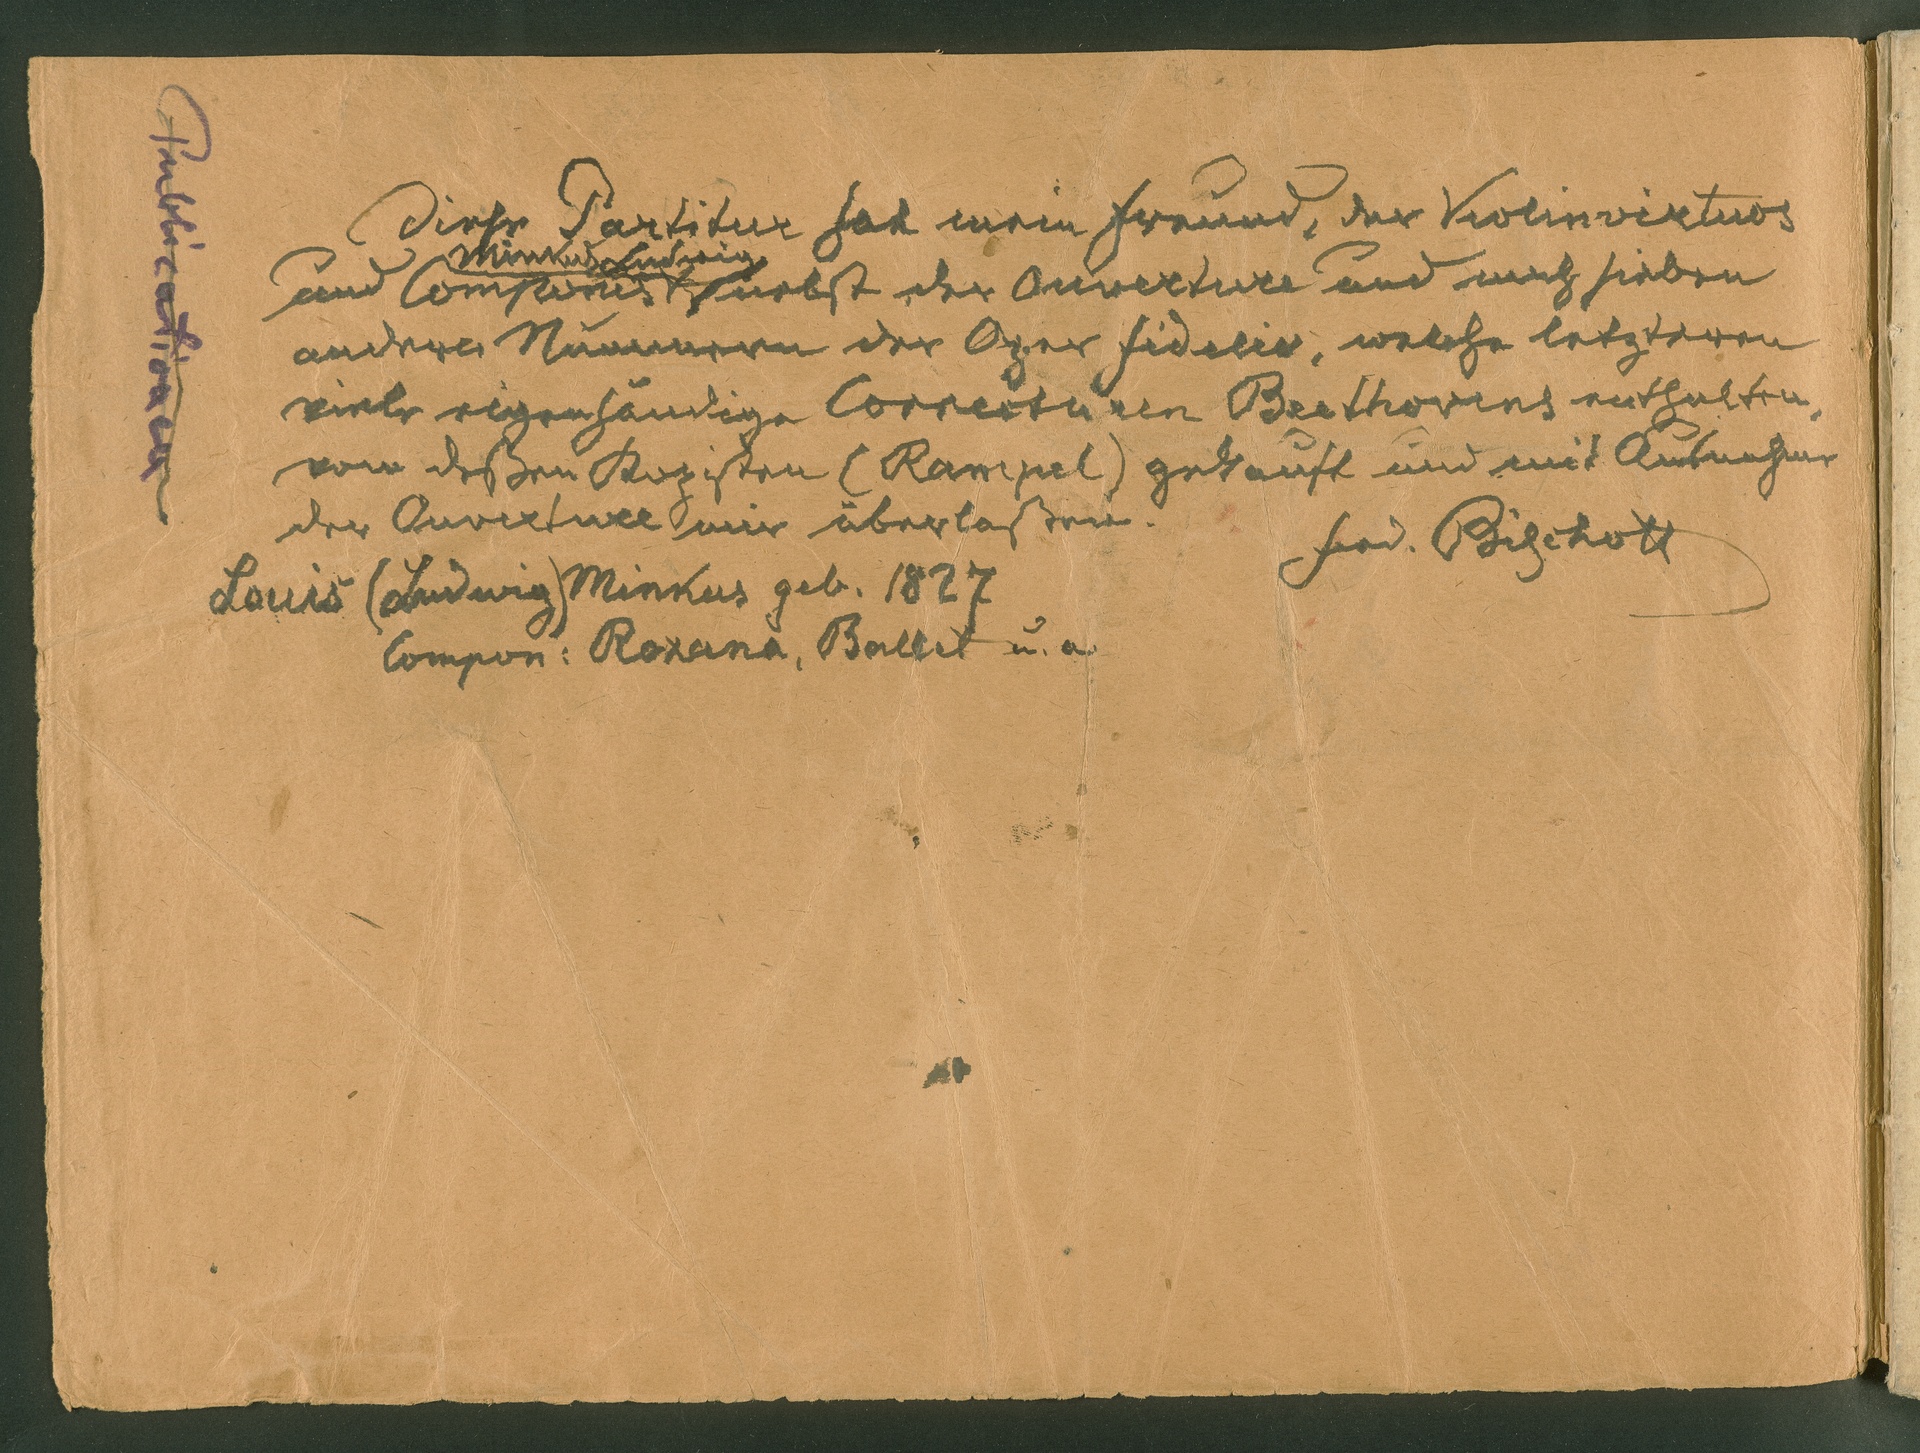 Publicationen
Diese Partitur hat mein Freund, der Violinvirtuos
Minkus Ludwig
und Componist nebst der Ouverture und noch sieben
anderen Nummern der Oper Fidelio, welche letzteren
viele eigenhändige Correcturen Beethovens enthalten,
von deßen Kopisten (Rampel) gekauft und mit Ausnahme
der Ouverture mir überlaßen.
Ferd. Bischoff
Louis (Ludwig) Minkus geb. 1827
Compon: Roxana, Ballet u. a.